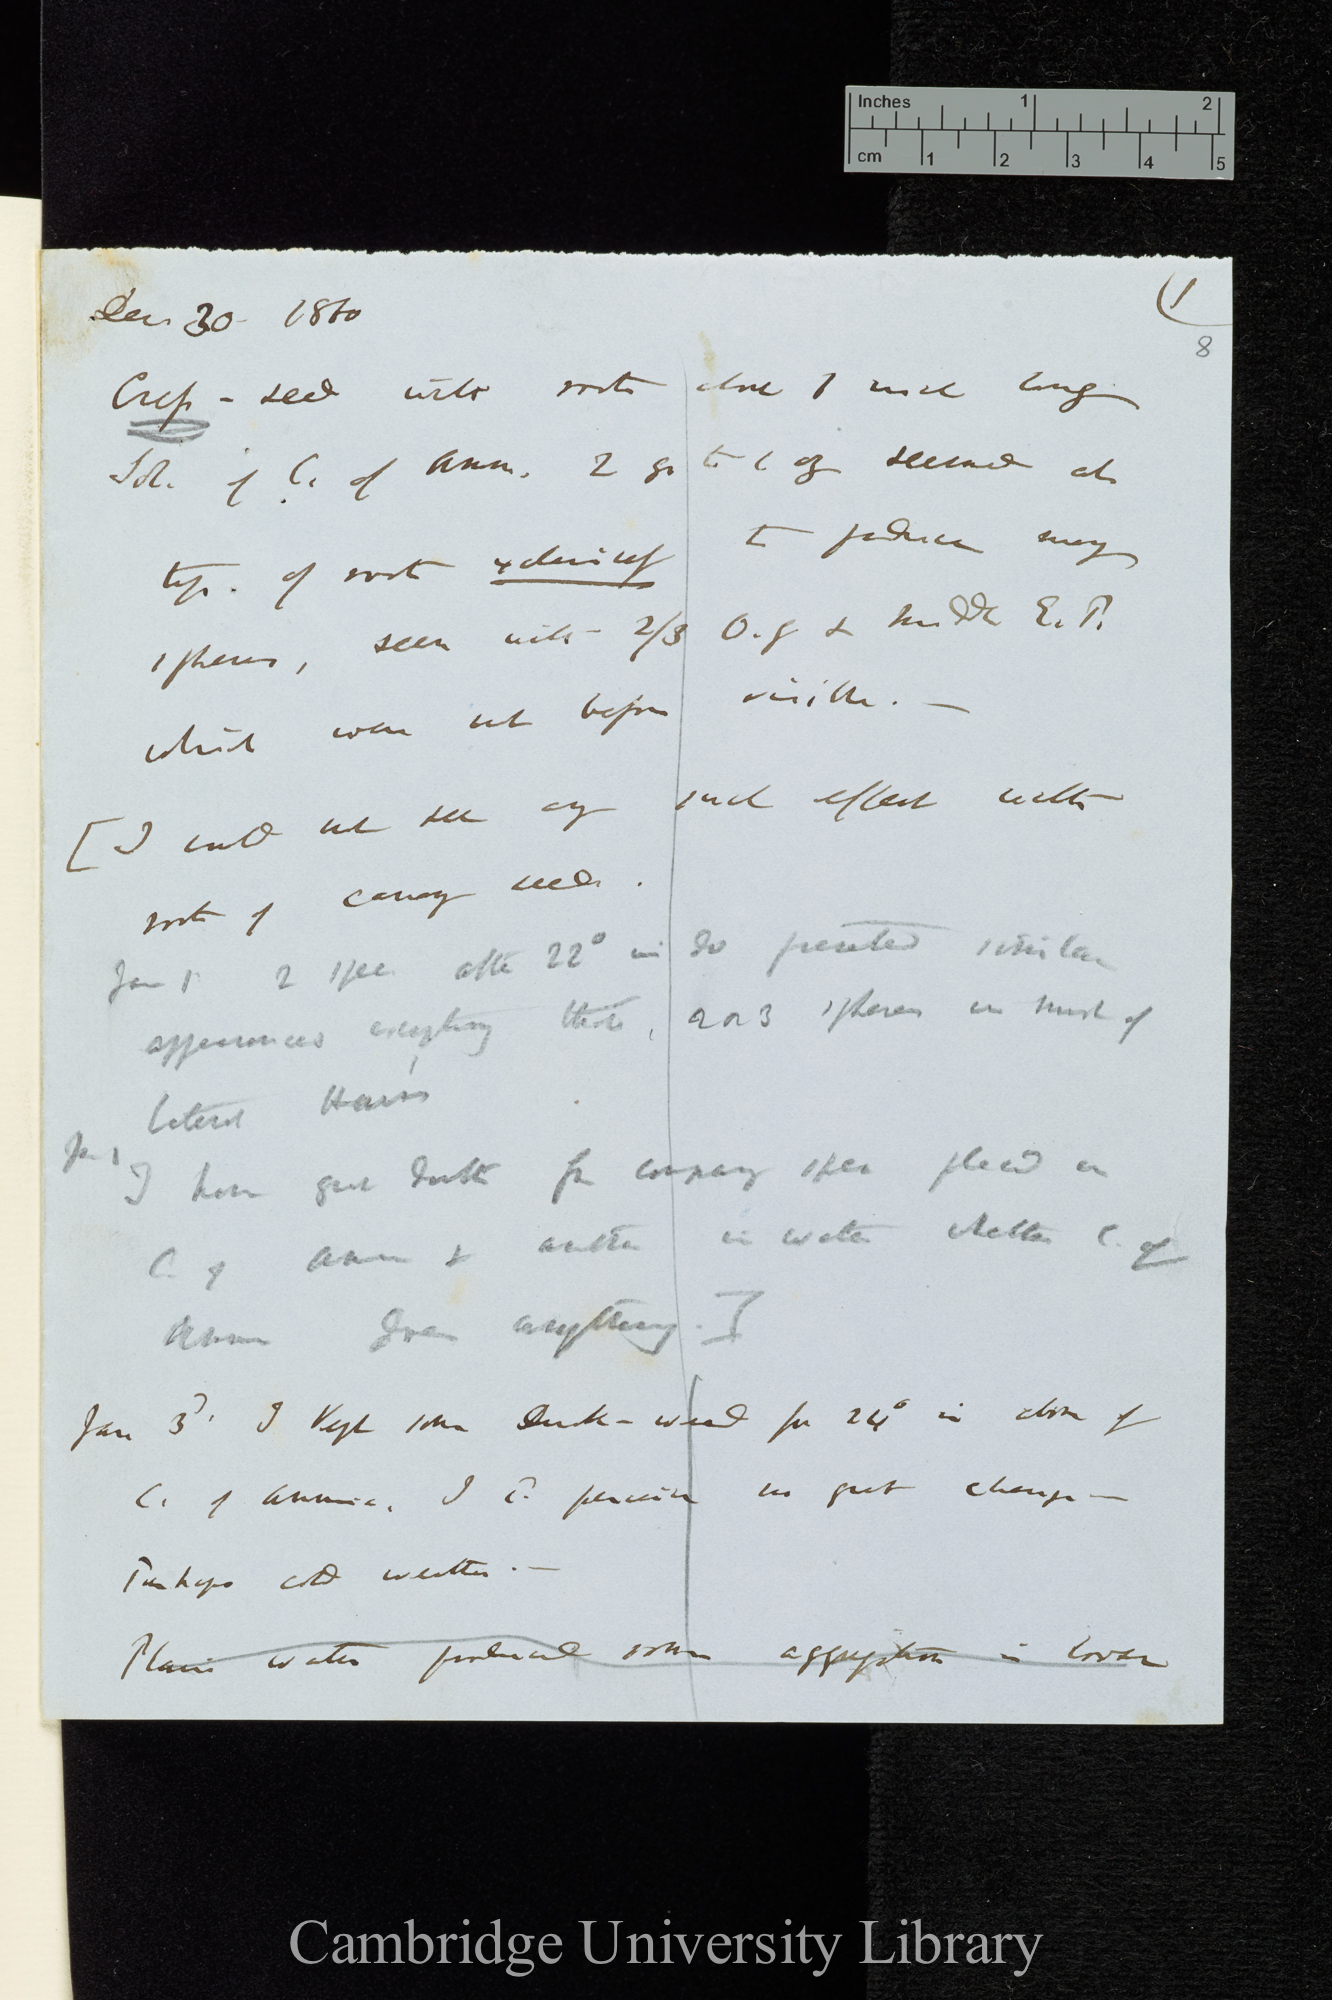 Inches 1 2
cm 1 2 3 4 5
(1
Dec 30 1860
8
Cress - seed with roots about 1 inch long
Sol. of C. of Amm. 2 gr to 1 oz seemed at
tips of roots to produce many
spheres, seen with 2/3 O.g & middle E.P.
which were not before visible. —
[I could not see any such effect with
roots of canary seeds.
Jan 1 2 spec after 22° in do presented similar
appearances excepting that, 2 or 3 spheres in most of
lateral Hairs
Jan 1 I have great doubts from comparing spec placed in
C. of Amm & another in water whether C. of
Amm does anything.]
Jan 3d. I kept some Duck-weed for 24° in above of
C. of Ammonia. I cd perceive no great change —
Perhaps cold weather. —
Plain water produced some aggregation in lower
Cambridge University Library